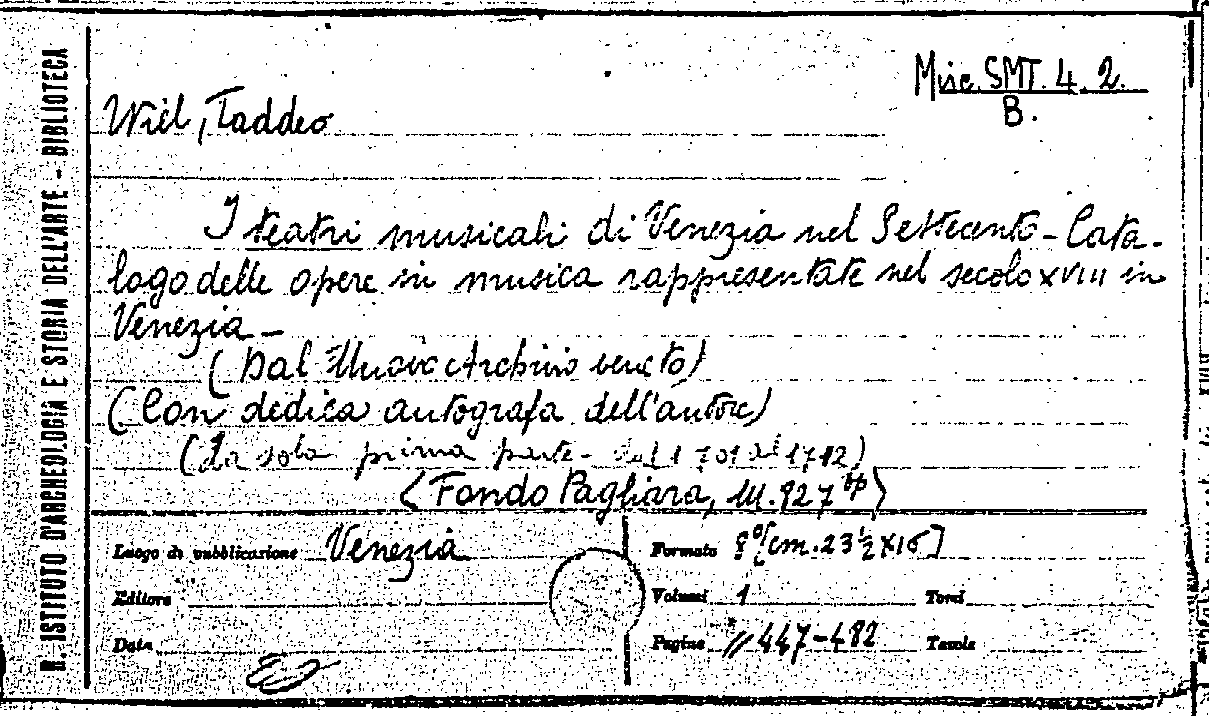 R. ISTITUTO D'ARCHEOLOGIA E STORIA DELL'ARTE - BIBLIOTECA
Misc. SMT. 4. 2.
B.
Wiel, Taddeo
I teatri musicali di Venezia nel Settecento - Cata-
logo delle opere in musica rappresentate nel secolo XVIII in
Venezia -
(Dal Nuovo Archivio veneto)
(Con dedica autografa dell'autore)
(La sola prima parte - dal 1701 al 1712)
(Fondo Pagliara, M. 927
Luogo di pubblicazione Venezia
Formato 8° [cm. 23½ X 15]
Editore
Volumi 1 Tomi
Data
Pagine 447-482 Tavole